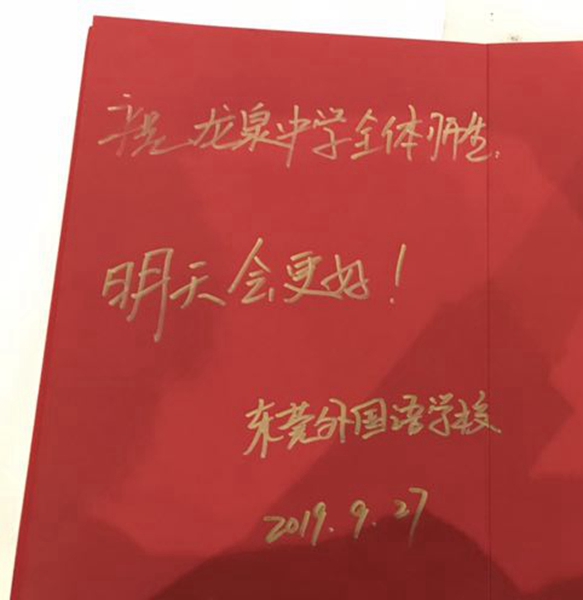 祝龙泉中学全体师生:
明天会更好!
东莞外国语学校
2019.9.27